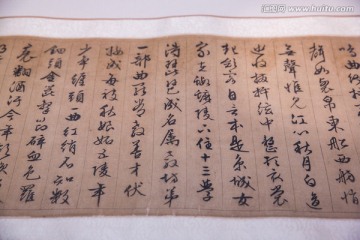 聲如裂帛東船西舫悄
無聲惟見江心秋月白
放撥插絃中整頓衣裳
起斂容自言本是京城女
家在蝦蟆陵下住十三學
得琵琶成名屬教坊第
一部曲罷常教善才伏
妝成每被秋娘妬五陵年
少爭纏頭一曲紅綃不知數
鈿頭銀篦擊節碎血色羅
裙翻酒污今年歡